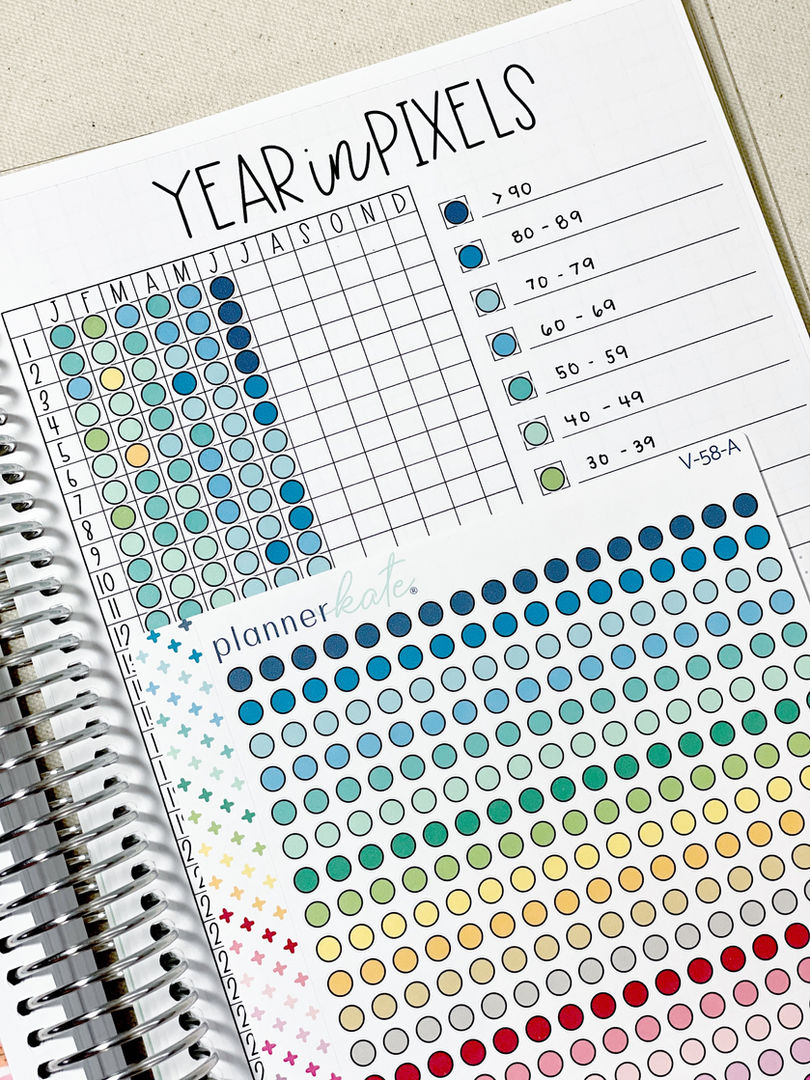 YEAR in PIXELS
J F M A M J J A S O N D
> 90
80 - 89
70 - 79
60 - 69
50 - 59
40 - 49
30 - 39
1
2
3
4
5
6
7
8
9
10
11
12
V-58-A
plannerkate®